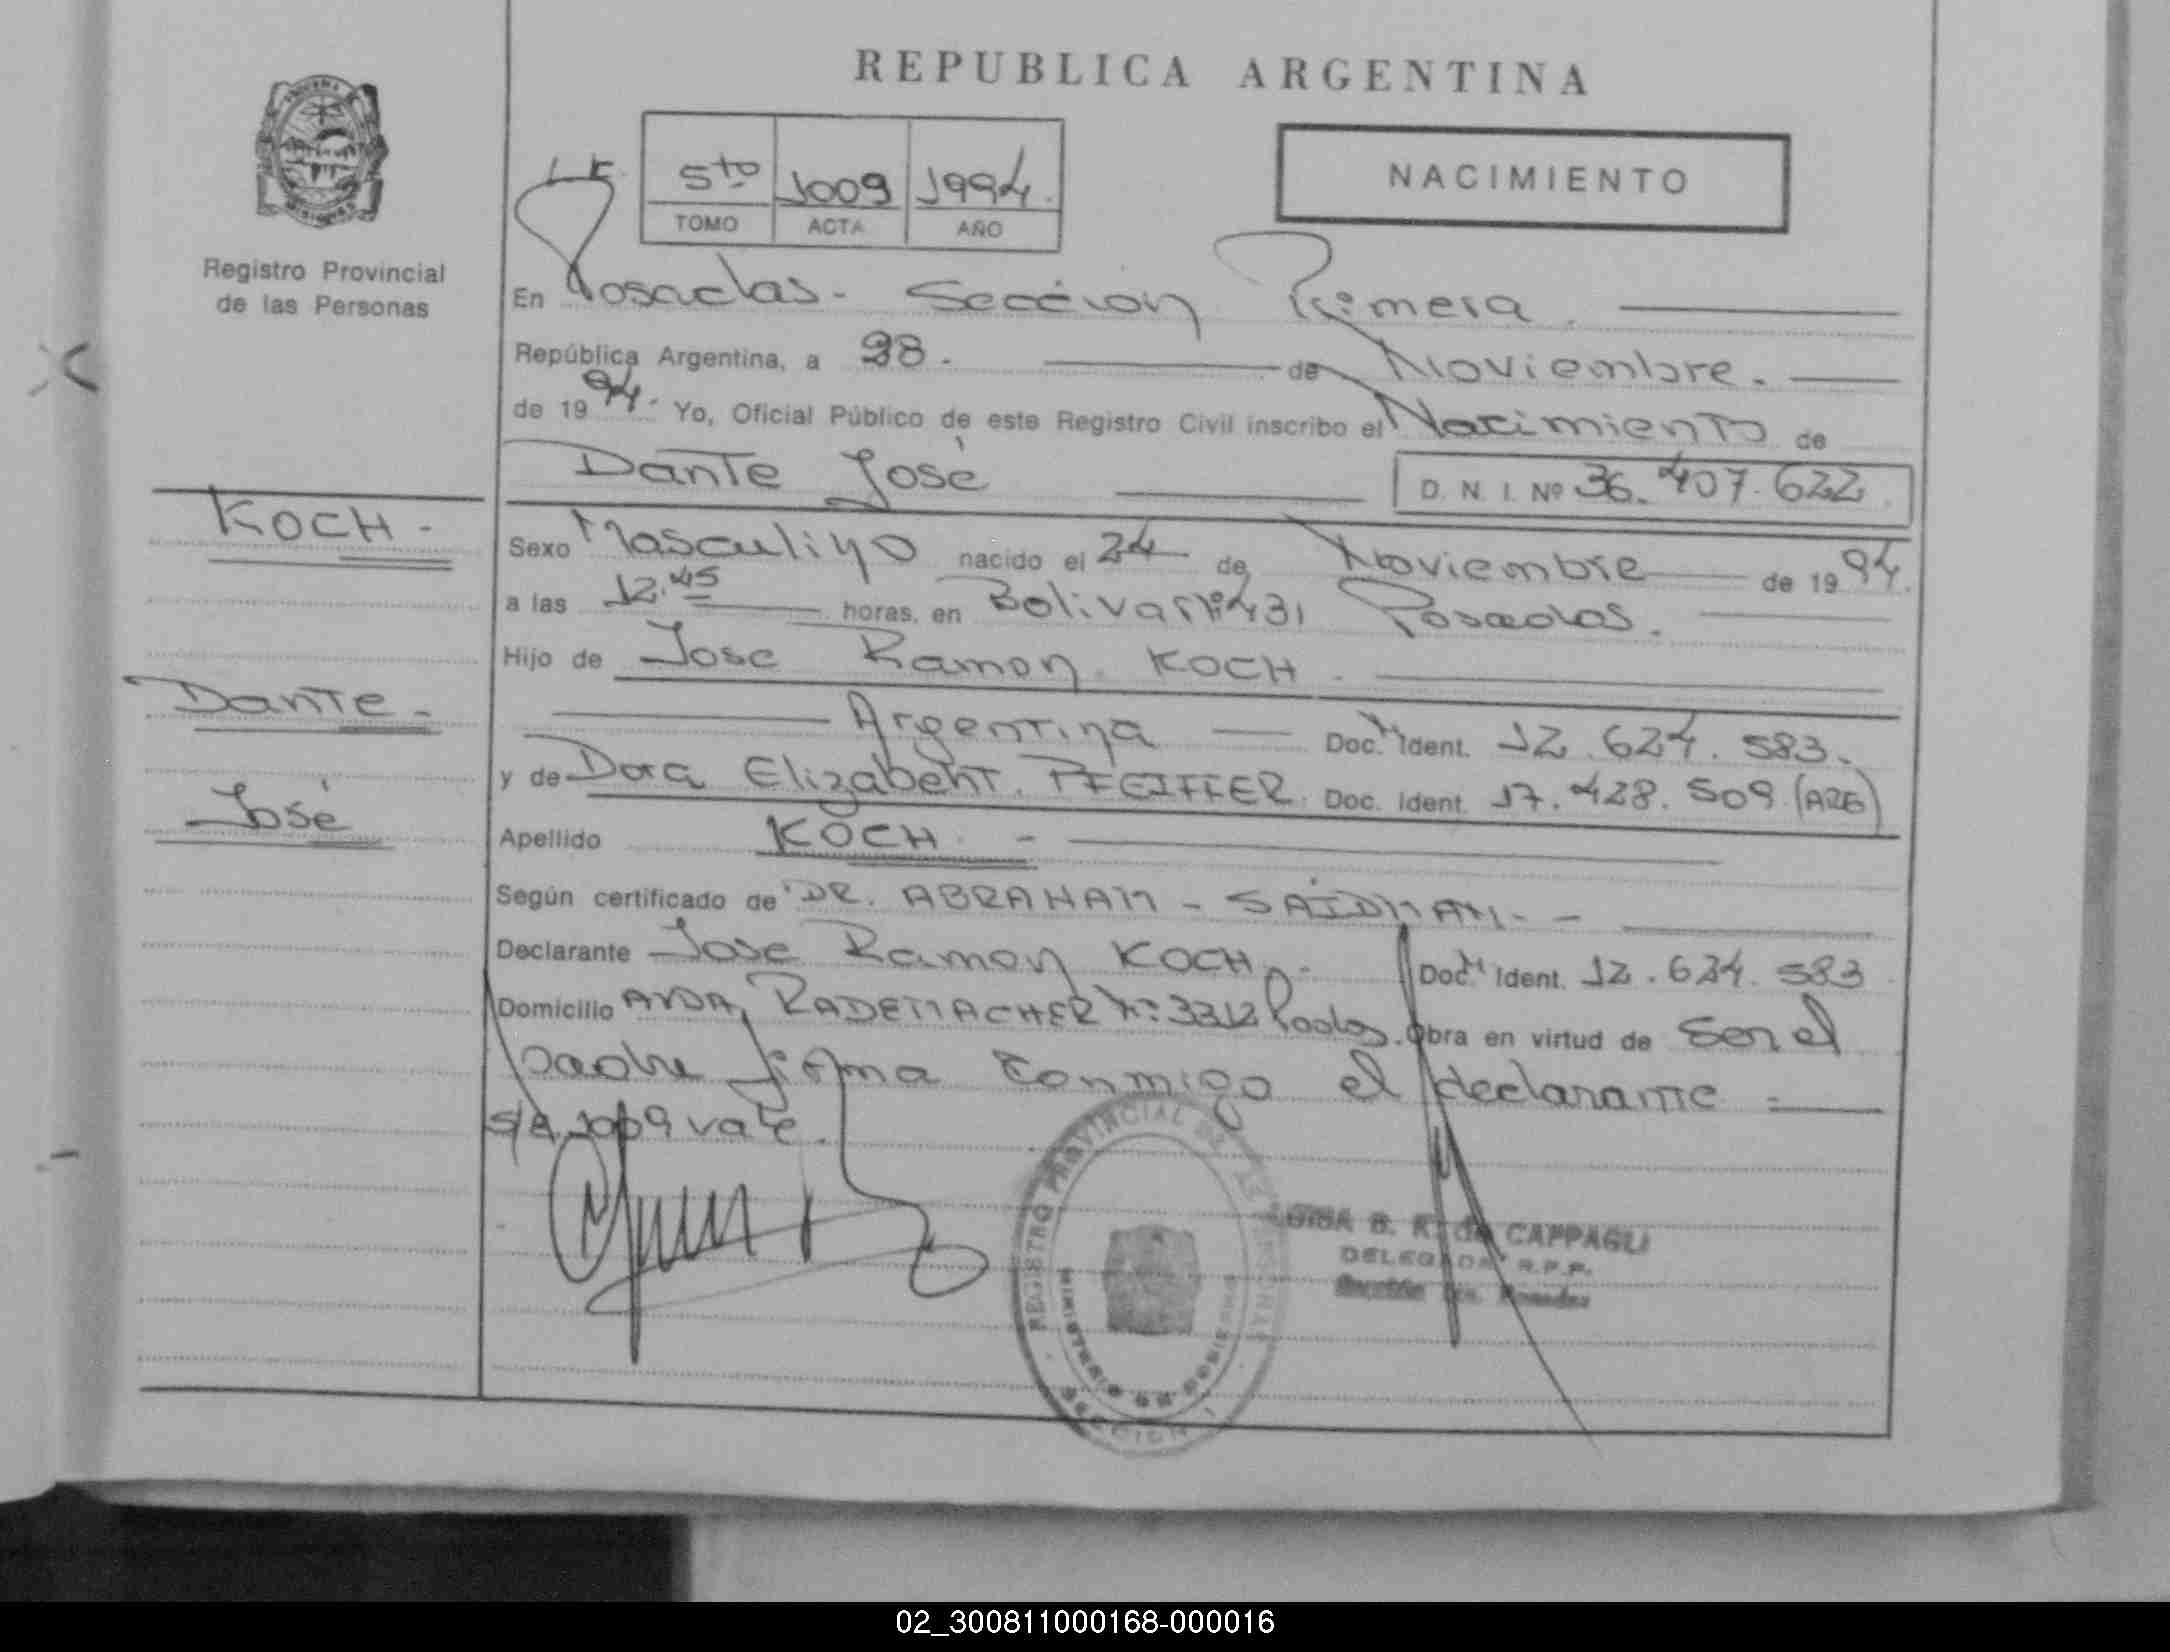 REPUBLICA ARGENTINA
5to 1009 1994.
TOMO ACTA AÑO
NACIMIENTO
Registro Provincial
de las Personas
En Posadas- Sección Primera.
República Argentina, a 28. de Noviembre.
de 1994. Yo, Oficial Público de este Registro Civil inscribo el Nacimiento de
Dante José D. N. I. Nº 36.407.622
KOCH-
Sexo Masculino nacido el 24 de Noviembre de 1994.
a las 12.45 horas, en Bolivar Nº431 Posadas.
Hijo de Jose Ramon KOCH.
Dante-
Argentina Doc. Ident. 12.624.583.
y de Dora Elizabeht. PFEIFFER. Doc. Ident. 17.428.509 (ARG)
José
Apellido KOCH. -
Según certificado de DR. ABRAHAM - SAIDMAN - -
Declarante Jose Ramon KOCH. Doc. Ident. 12.624.583
Domicilio AVDA, RADEMACHER Nº 3312 Posdas. Obra en virtud de Ser el
padre firma conmigo el declarante -
S/A 1009 vale.
REGISTRO PROVINCIAL DE LAS PERSONAS
MINISTERIO DE GOBIERNO
SECCION 1
LUISA B. R. de CAPPAGLI
DELEGADA R.P.P.
Sección 1ra. Posadas
02_300811000168-000016